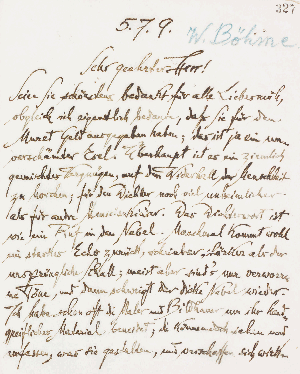 327
5.7.9.
W. Böhme
Sehr geehrter Herr!
Seien Sie schönstens bedankt für alle Liebesmüh,
obgleich ich eigentlich bedaure, daß Sie für den
Geld ausgegeben haben; das ist ja ein un-
verschämter Esel. Überhaupt ist es ein ziemlich
gemischtes Vergnügen, auf den Widerhall der Menschheit
zu horchen; für den Dichter noch viel unheimlicher
als für andre Das Dichterwort ist
wie ein Ruf in den Nebel. Manchmal kommt wohl
ein starkes Echo zurück, scheinbar stärker als der
ursprüngliche Schall; meist aber sind's nur verworre-
ne Töne, und dann schweigt der dicke Nebel wieder.
Ich habe schon oft die Maler und Bildhauer um ihr hand-
greifliches Material beneidet; die können doch sehen und
was sie gestalten, und verschaffen sich